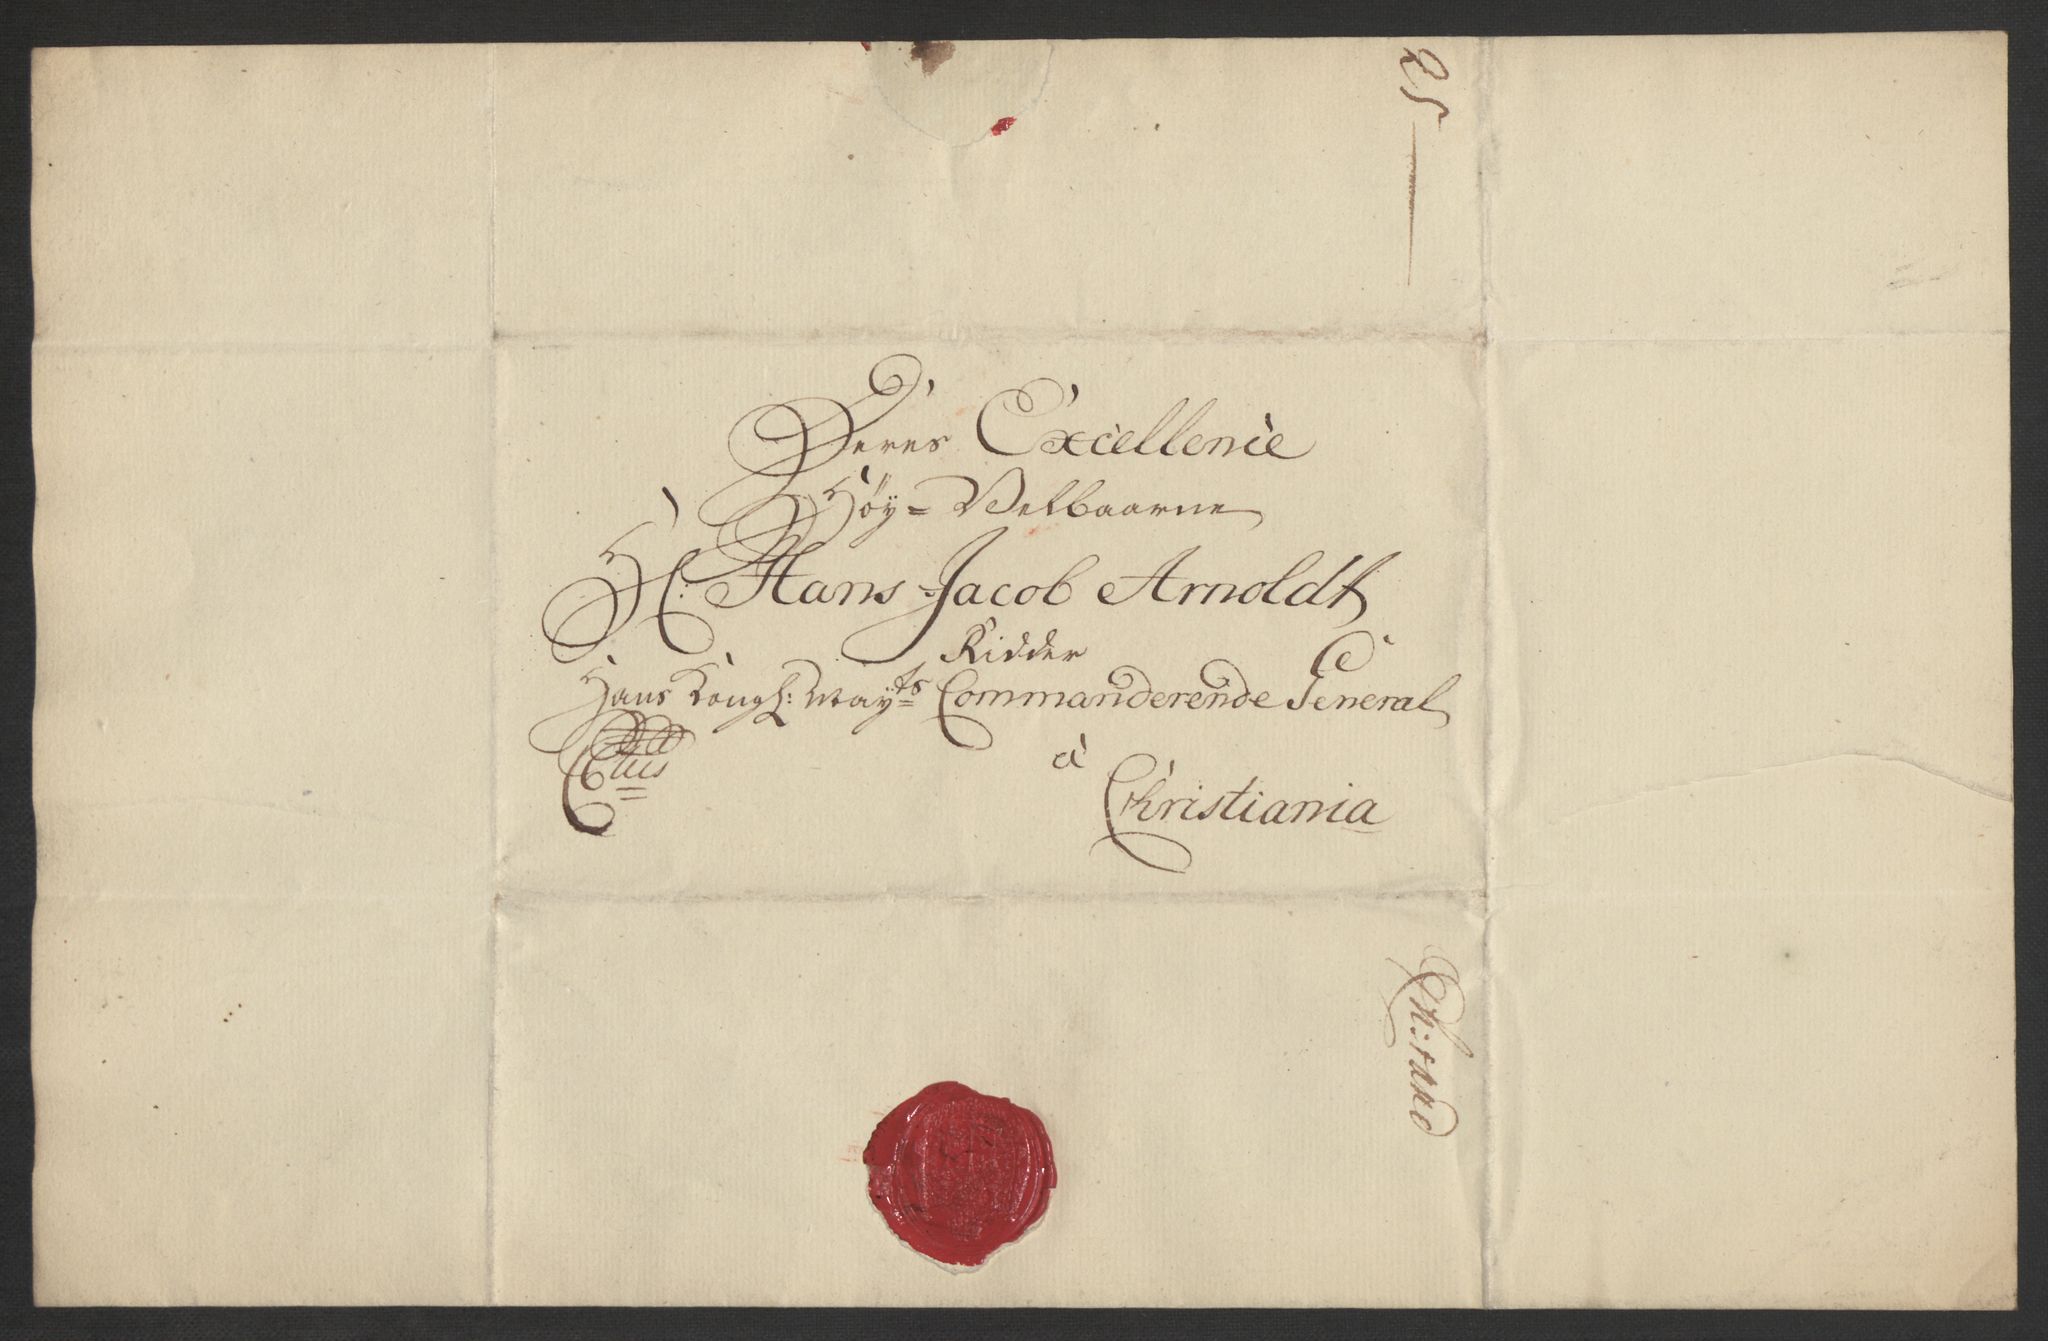 Deres Excellence
Høy= Velbaarne
H: Hans Jacob Arnoldt
Ridder
Hans Kongl: May:ts Commanderende General
à
Christiania
25
Ch:sand